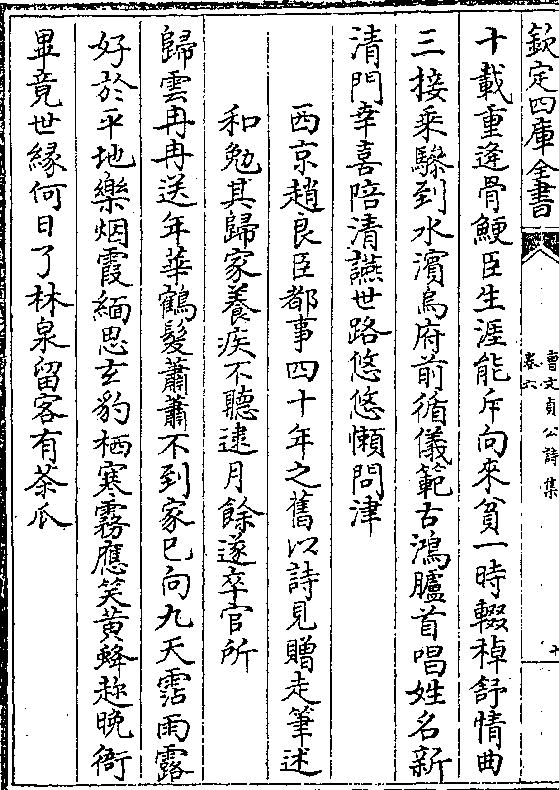 欽定四庫全書
曹文貞公詩集
卷六
十
十載重逢骨鯁臣生涯能斥向來貧一時輟棹舒情曲
三接乘驂到水濱烏府前循儀範古鴻臚首唱姓名新
清門幸喜陪清讌世路悠悠懶問津
西京趙良臣都事四十年之舊以詩見贈走筆述
和勉其歸家養疾不聽逮月餘遂卒官所
歸雲冉冉送年華鶴髮蕭蕭不到家已向九天霑雨露
好於平地樂烟霞緬思玄豹栖寒霧應笑黄蜂趂晚衙
畢竟世緣何日了林泉留客有茶瓜